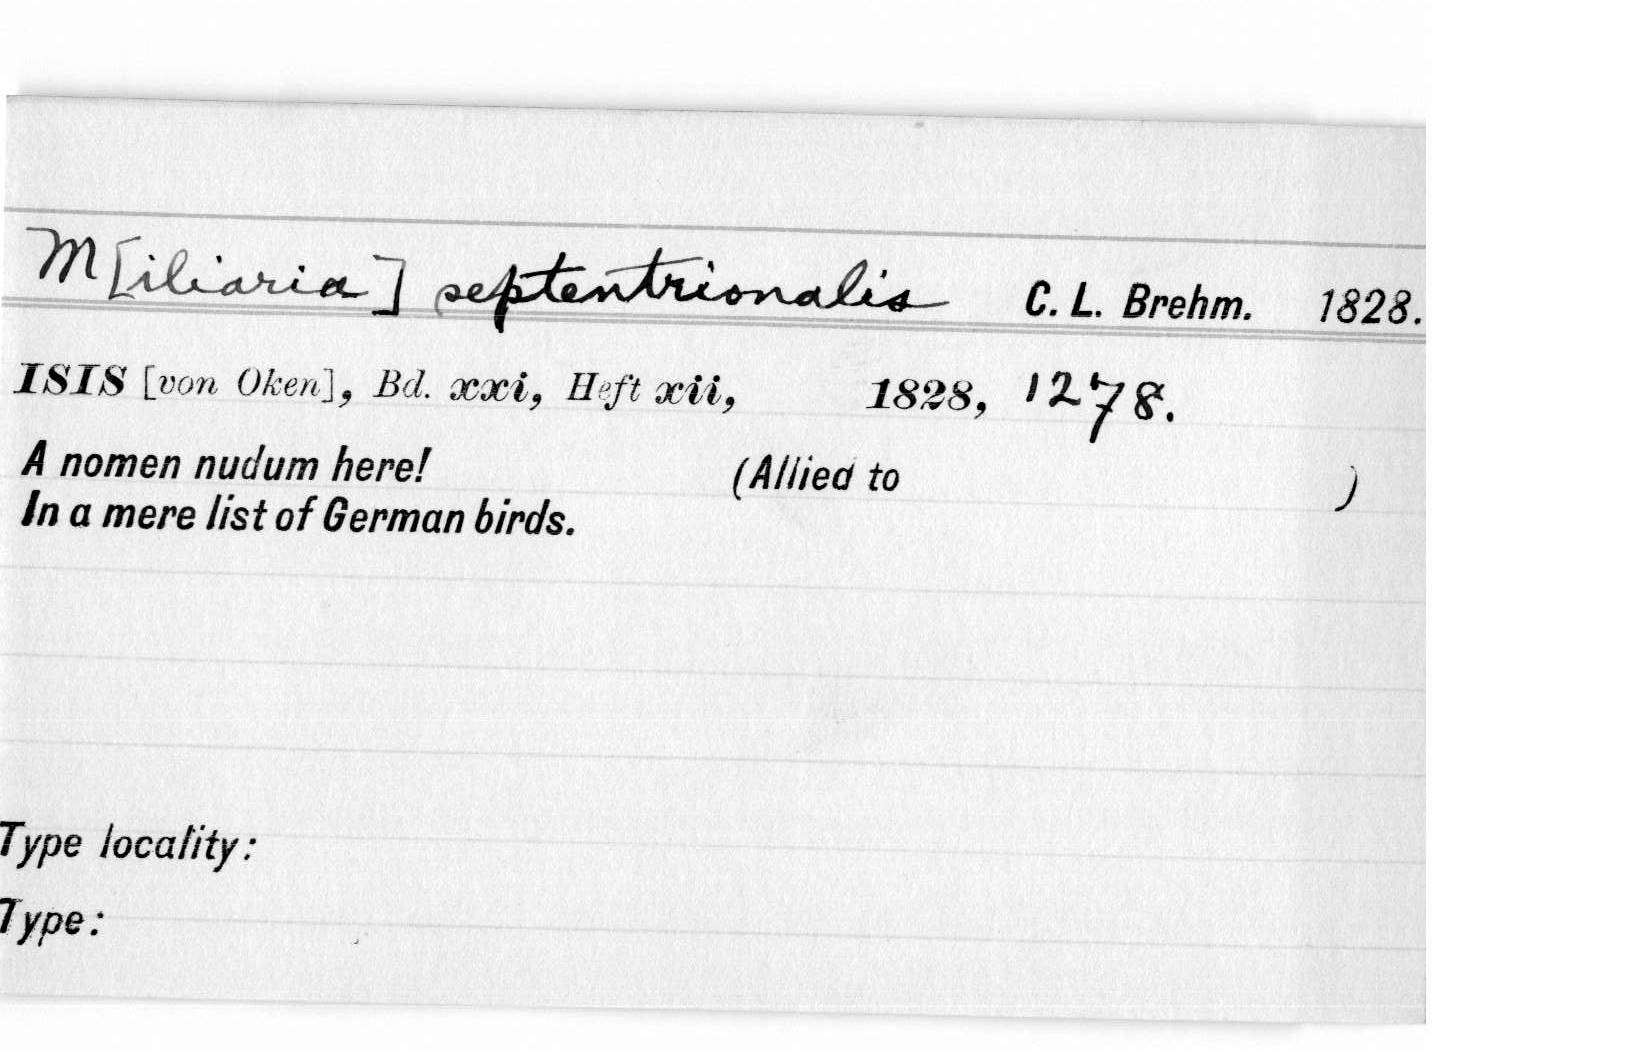 M[iliaria] septentrionalis C. L. Brehm. 1828.
ISIS [von Oken], Bd. xxi, Heft xii, 1828, 1278.
A nomen nudum here! (Allied to )
In a mere list of German birds.
Type locality:
Type: